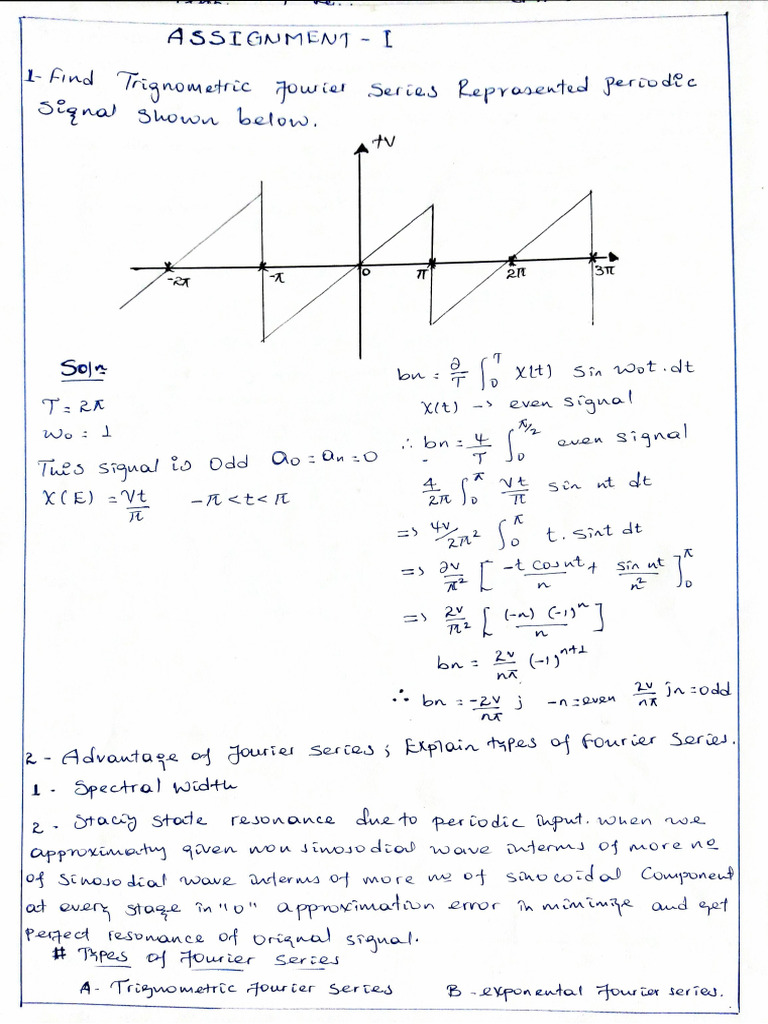 ASSIGNMENT - I
1- Find Trignometric Fourier Series Reprasented periodic
Signal shown below.
+V
-2π -π 0 π 2π 3π
Soln
T = 2π
ω0 = 1
This signal is odd a0 = an = 0
X(E) = Vt/π -π < t < π
bn = 2/T ∫₀ᵀ X(t) Sin ω0t. dt
X(t) -> even signal
∴ bn = 4/T ∫₀^π/2 even signal
4/2π ∫₀^π Vt/π sin nt dt
=> 4V/2π² ∫₀^π t. sint dt
=> 2V/π² [ -t cosnt/n + sin nt/n² ]₀^π
=> 2V/π² [ (-n) (-1)ⁿ/n ]
bn = 2V/nπ (-1)ⁿ⁺¹
∴ bn = -2V/nπ j -n=even 2V/nπ jn=odd
2 - Advantage of Fourier Series ; Explain types of Fourier Series.
1 - Spectral Width
2 - state resonance due to periodic input. when we
given non sinosodial wave interms of more no
of Sinosodial wave interms of more no of sinocoidal Component
at every stage in "0" approximation error in minimize and get
perfect resonance of orignal signal.
# Types of Fourier Series
A- Trignometric Fourier Series B - exponental Fourier series.